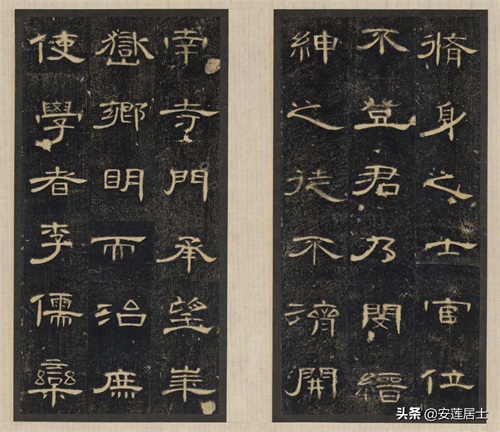 脩身之士官位
不登君乃閔縉
紳之徒不濟開
南寺門承望華
嶽鄉明而治庶
使學者李儒欒
头条 @安莲居士